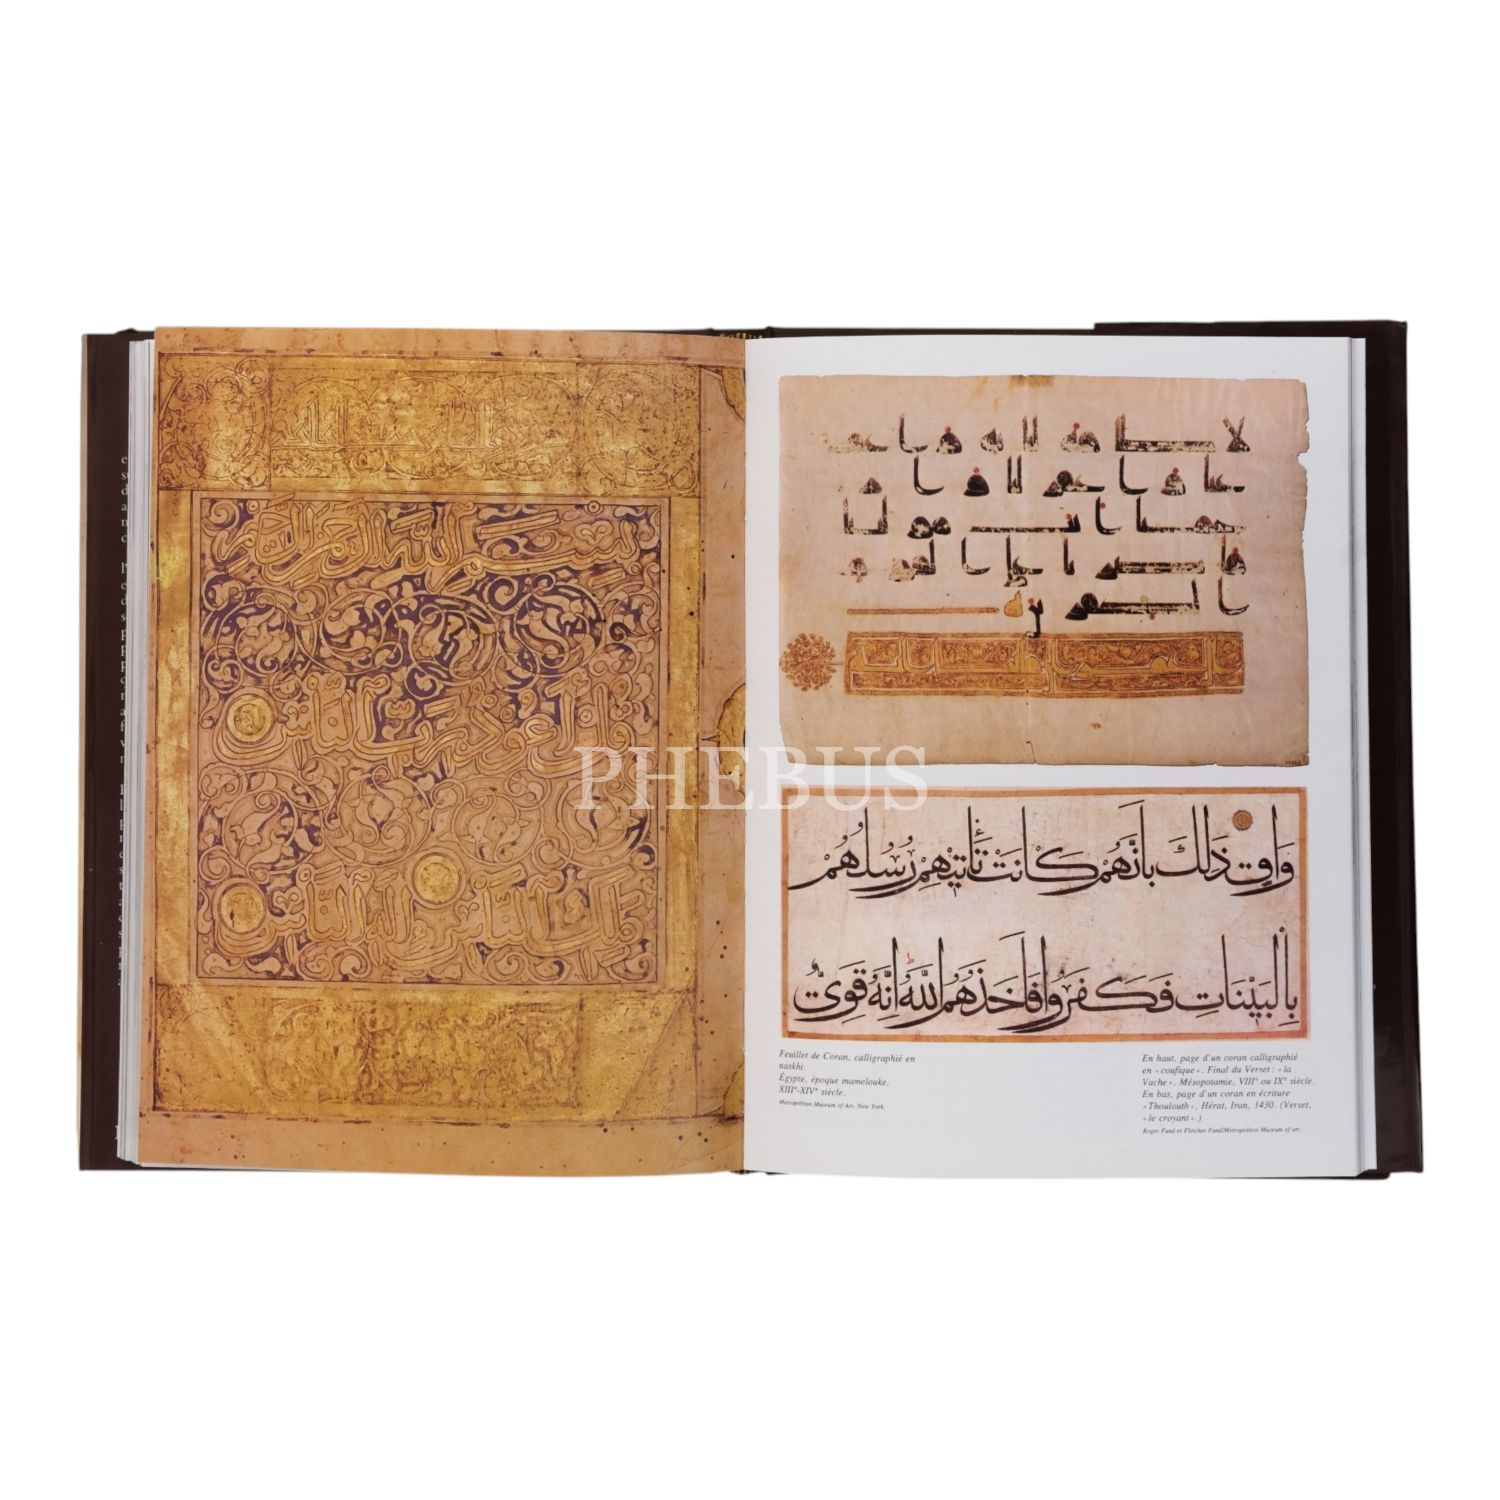 بسم الله الرحمن الرحيم
قل أعوذ برب الناس
ملك الناس إله الناس
لا طاقه لنا به واعف
عنا واغفر لنا وار
حمنا انت مولنا
فانصرنا على القوم
الكفرين
وَاقٍ ذَلِكَ بِأَنَّهُمْ كَانَتْ تَأْتِيهِمْ رُسُلُهُمْ
بِالبَيِّنَاتِ فَكَفَرُوا فَأَخَذَهُمُ اللَّهُ إِنَّهُ قَوِيٌّ
PHEBUS
Feuillet de Coran, calligraphié en
naskhi.
Égypte, époque mamelouke,
XIIIe-XIVe siècle.
Metropolitan Museum of Art, New York.
En haut, page d'un coran calligraphié
en « coufique ». Final du Verset : « la
Vache ». Mésopotamie, VIIIe ou IXe siècle.
En bas, page d'un coran en écriture
« Thoulouth », Hérat, Iran, 1430. (Verset,
« le croyant ».)
Roger Fund et Fletcher Fund/Metropoliton Museum of art.